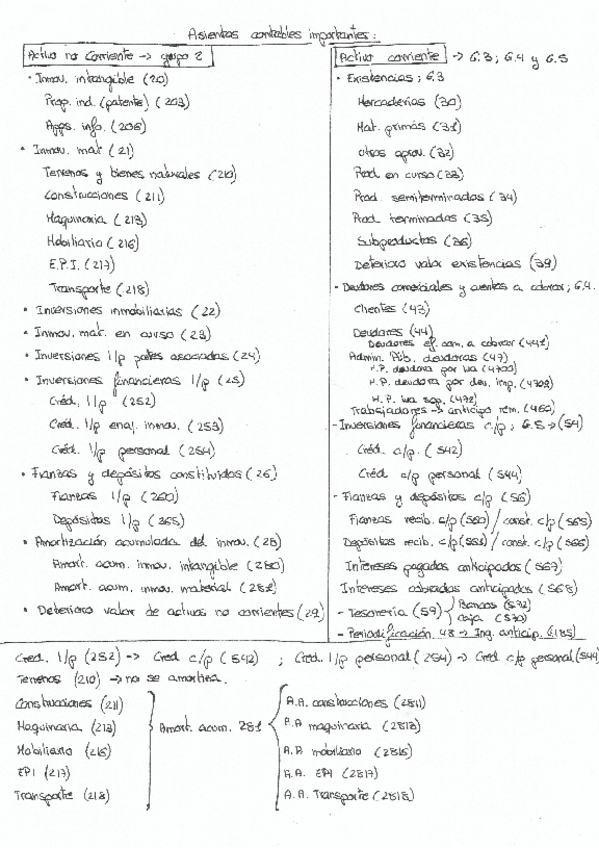 Asientos contables importantes:
Activo no Corriente → grupo 2
· Inmov. intangible (20)
Prop. ind. (patente) (203)
Apps. info. (206)
· Inmov. mat (21)
Terrenos y bienes naturales (210)
Construcciones (211)
Maquinaria (213)
Mobiliario (216)
E.P.I. (217)
Transporte (218)
· Inversiones inmobiliarias (22)
· Inmov. mat. en curso (23)
· Inversiones l/p partes asociadas (24)
· Inversiones financieras l/p (25)
Créd. l/p (252)
Créd. l/p enaj. inmov. (253)
Créd. l/p personal (254)
· Fianzas y depósitos constituidos (26)
Fianzas l/p (260)
Depósitos l/p (265)
· Amortización acumulada del inmov. (28)
Amort. acum. inmov. intangible (280)
Amort. acum. inmov. material (281)
· Deterioro valor de activos no corrientes (29)
Activo corriente → G.3; G.4 y G.5
· Existencias; G.3
Mercaderías (30)
Mat. primas (31)
Otros aprov. (32)
Prod en curso (33)
Prod. semiterminados (34)
Prod. terminados (35)
Subproductos (36)
Deterioro valor existencias (39)
- Deudores comerciales y cuentas a cobrar; G.4.
Clientes (43)
Deudores (44)
Deudores ef. com. a cobrar (441)
Admin. Púb. deudoras (47)
H.P. deudora por iva (4700)
H.P. deudora por dev. imp. (4709)
H.P. iva sop. (472)
Trabajadores → anticipo rem. (460)
- Inversiones financieras c/p; G.5 → (54)
Créd. c/p. (542)
Créd c/p personal (544)
- Fianzas y depósitos c/p (56)
Fianzas recib. c/p (560) / const. c/p (565)
Depósitos recib. c/p (561) / const. c/p (566)
Intereses pagados anticipados (567)
Intereses cobrados anticipados (568)
- Tesorería (57) Bancos (572)
Caja (570)
- Periodificación 48 → Ing. anticip. (485)
Cred. l/p (252) → Cred c/p (542) ; Cred. l/p personal (254) → Cred c/p personal (544)
Terrenos (210) → no se amortiza.
Construcciones (211)
Maquinaria (213)
Mobiliario (216)
EPI (217)
Transporte (218)
Amort. acum. 281
A.A. construcciones (2811)
A.A maquinaria (2813)
A.A mobiliario (2816)
A.A. EPI (2817)
A.A. Transporte (2818)